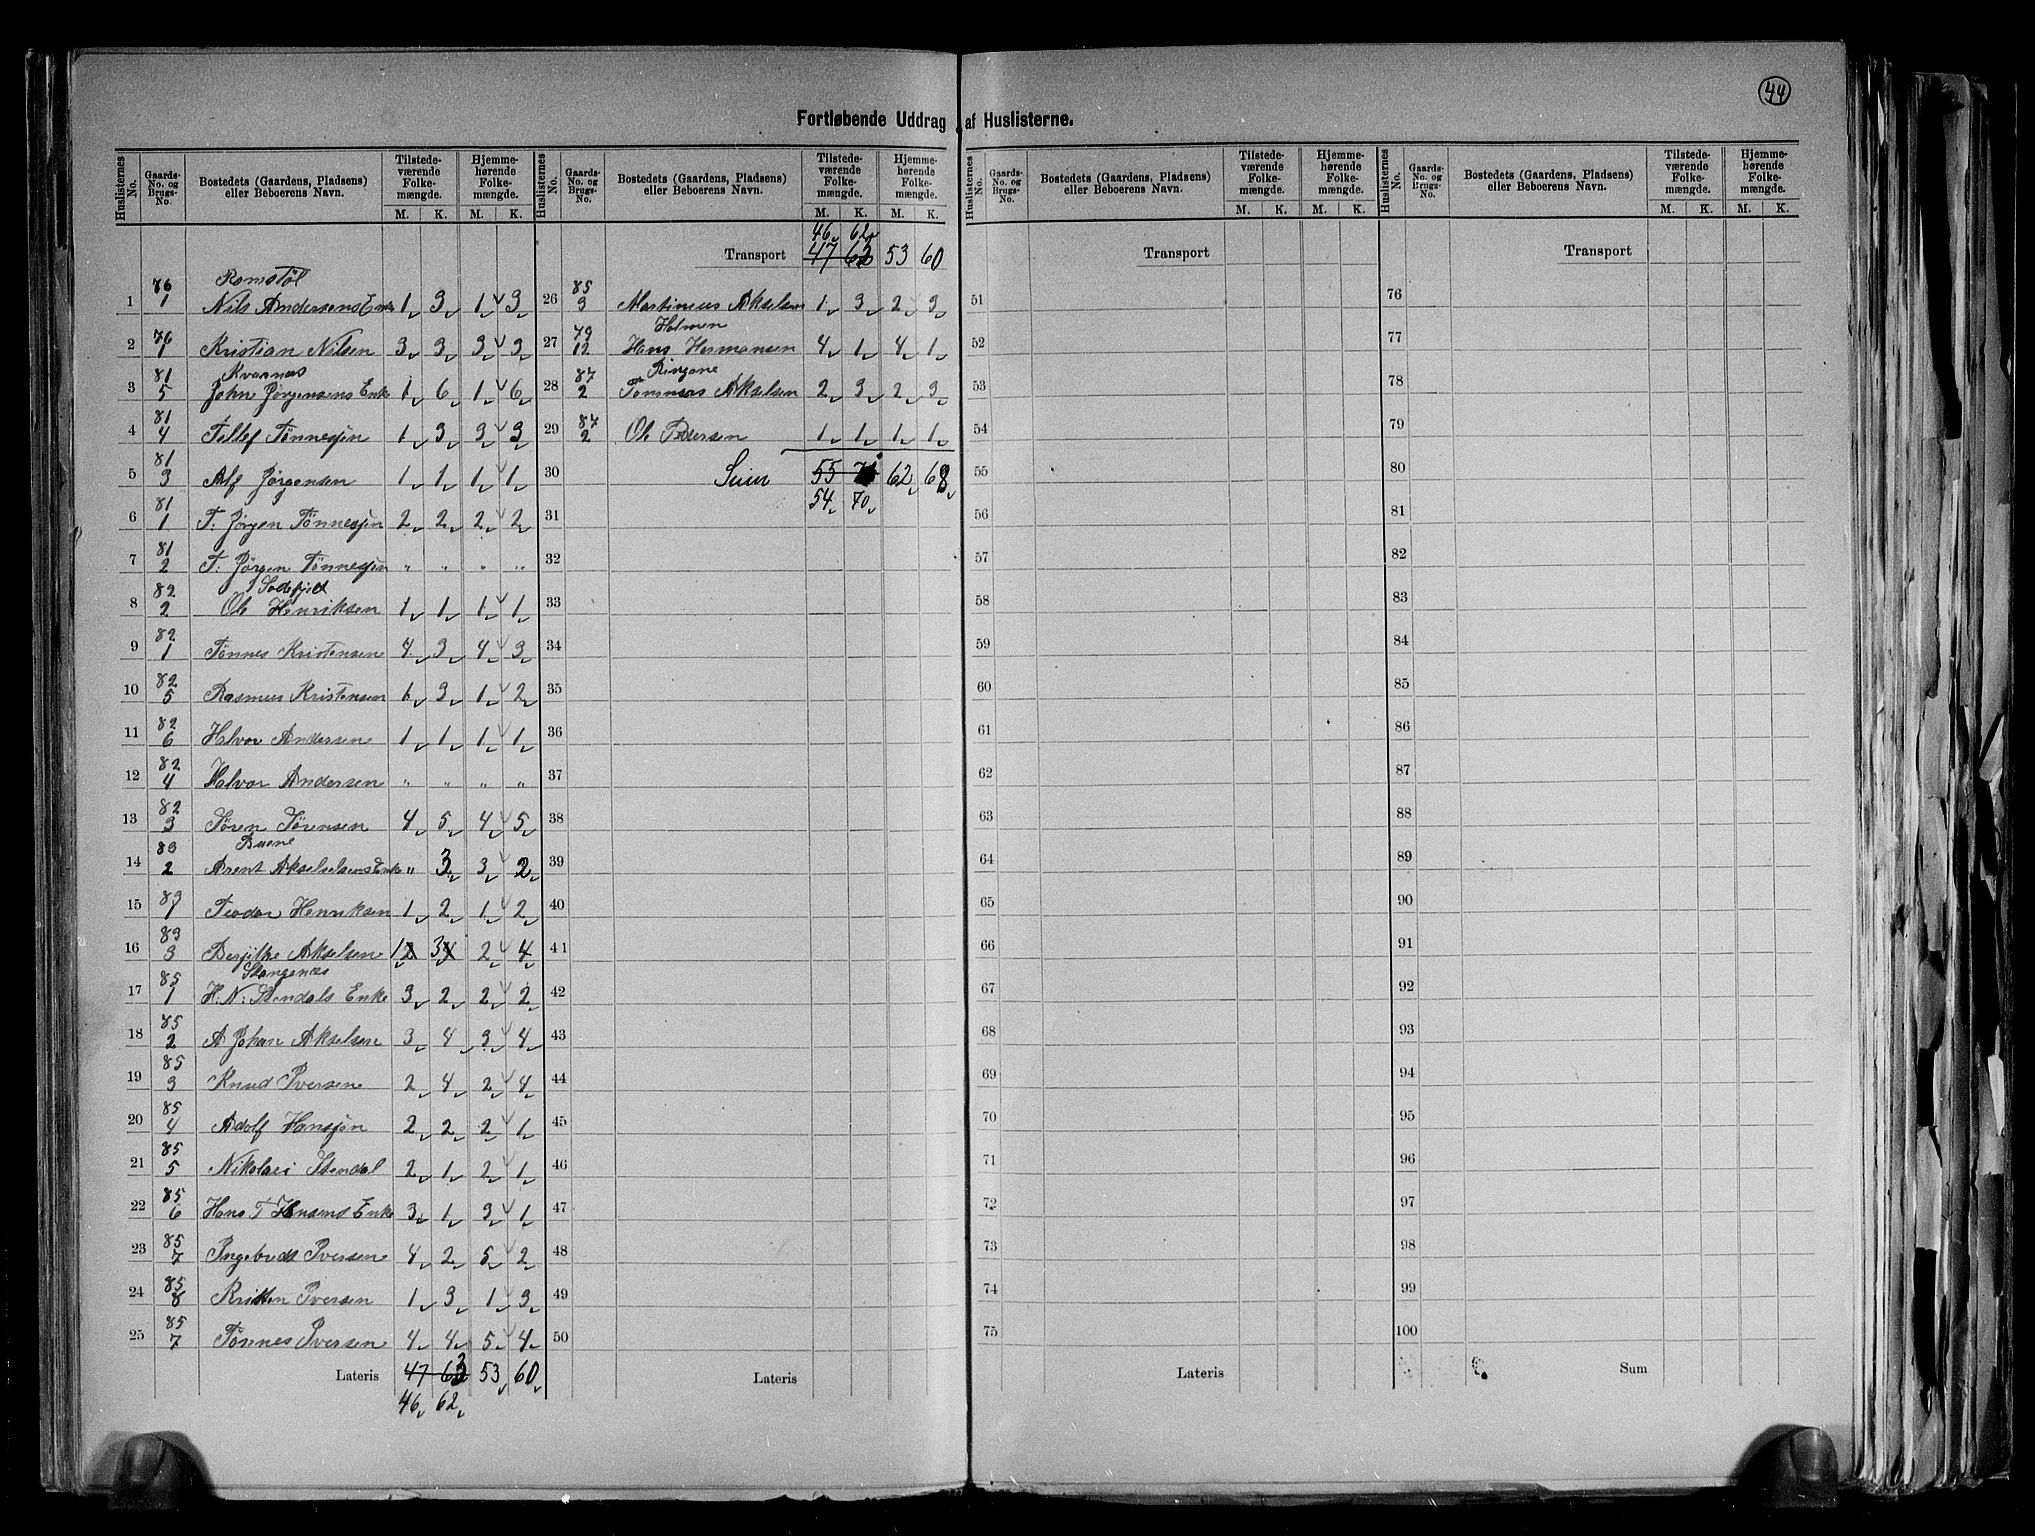 44
Fortløbende Uddrag af Huslisterne.
Huslisternes No. Gaards- No. og Brugs- No. Bostedets (Gaardens, Pladsens) eller Beboerens Navn. Tilstede- værende Folke- mængde. M. K. Hjemme- hørende Folke- mængde. M. K.
Romstøl
1 76 1 Nils Andersens Enke 1 3 1 3
2 76 1 Kristian Nilsen 3 3 3 3
Kvarnæs
3 81 5 John Jørgensens Enke 1 6 1 6
4 81 4 Tellef Tønnesjen 1 3 3 3
5 81 3 Alf Jørgensen 1 1 1 1
6 81 1 T. Jørgen Tønnesjen 2 2 2 2
7 81 2 T. Jørgen Tønnesjen " " " "
8 82 2 Ole Henriksen 1 1 1 1
9 82 1 Tønnes Kristensen 4 3 4 3
10 82 5 Rasmus Kristensen 1 3 1 2
11 82 6 Halvor Andersen 1 1 1 1
12 82 4 Halvor Andersen " " " "
13 82 3 Sören Sörensen 4 5 4 5
Buene
14 83 2 Arent Akselselsens Enke " 3 3 2
15 83 1 Teodor Henriksen 1 2 1 2
16 83 3 Berjithe Akselsen 1 2 3 4 2 4
Stangenæs
17 85 1 H. N. Stendals Enke 3 2 2 2
18 85 2 A Johan Akselsen 3 4 3 4
19 85 3 Knud Iversen 2 4 2 4
20 85 4 Adolf Hansjøn 2 2 2 1
21 85 5 Nikolai Stendal 2 1 2 1
22 85 6 Hans T Hensens Enke 3 1 3 1
23 85 7 Ingebret Iversen 4 2 5 2
24 85 8 Kristen Iversen 1 3 1 3
25 85 7 Tønnes Iversen 4 4 5 4
Lateris 47 63 53 60
46 62
Huslisternes No. Gaards- No. og Brugs- No. Bostedets (Gaardens, Pladsens) eller Beboerens Navn. Tilstede- værende Folke- mængde. M. K. Hjemme- hørende Folke- mængde. M. K.
46 62
Transport 47 63 53 60
26 85 3 Martinius Akselsen 1 3 2 3
Holmen
27 79 12 Hans Hermansen 4 1 4 1
Ringene
28 87 2 Tommas Akselsen 2 3 2 3
29 87 2 Ole Pedersen 1 1 1 1
30 Sum 55 71 62 68
54 70
31
32
33
34
35
36
37
38
39
40
41
42
43
44
45
46
47
48
49
50
Lateris
Huslisternes No. Gaards- No. og Brugs- No. Bostedets (Gaardens, Pladsens) eller Beboerens Navn. Tilstede- værende Folke- mængde. M. K. Hjemme- hørende Folke- mængde. M. K.
Transport
51
52
53
54
55
56
57
58
59
60
61
62
63
64
65
66
67
68
69
70
71
72
73
74
75
Lateris
Huslisternes No. Gaards- No. og Brugs- No. Bostedets (Gaardens, Pladsens) eller Beboerens Navn. Tilstede- værende Folke- mængde. M. K. Hjemme- hørende Folke- mængde. M. K.
Transport
76
77
78
79
80
81
82
83
84
85
86
87
88
89
90
91
92
93
94
95
96
97
98
99
100
Sum